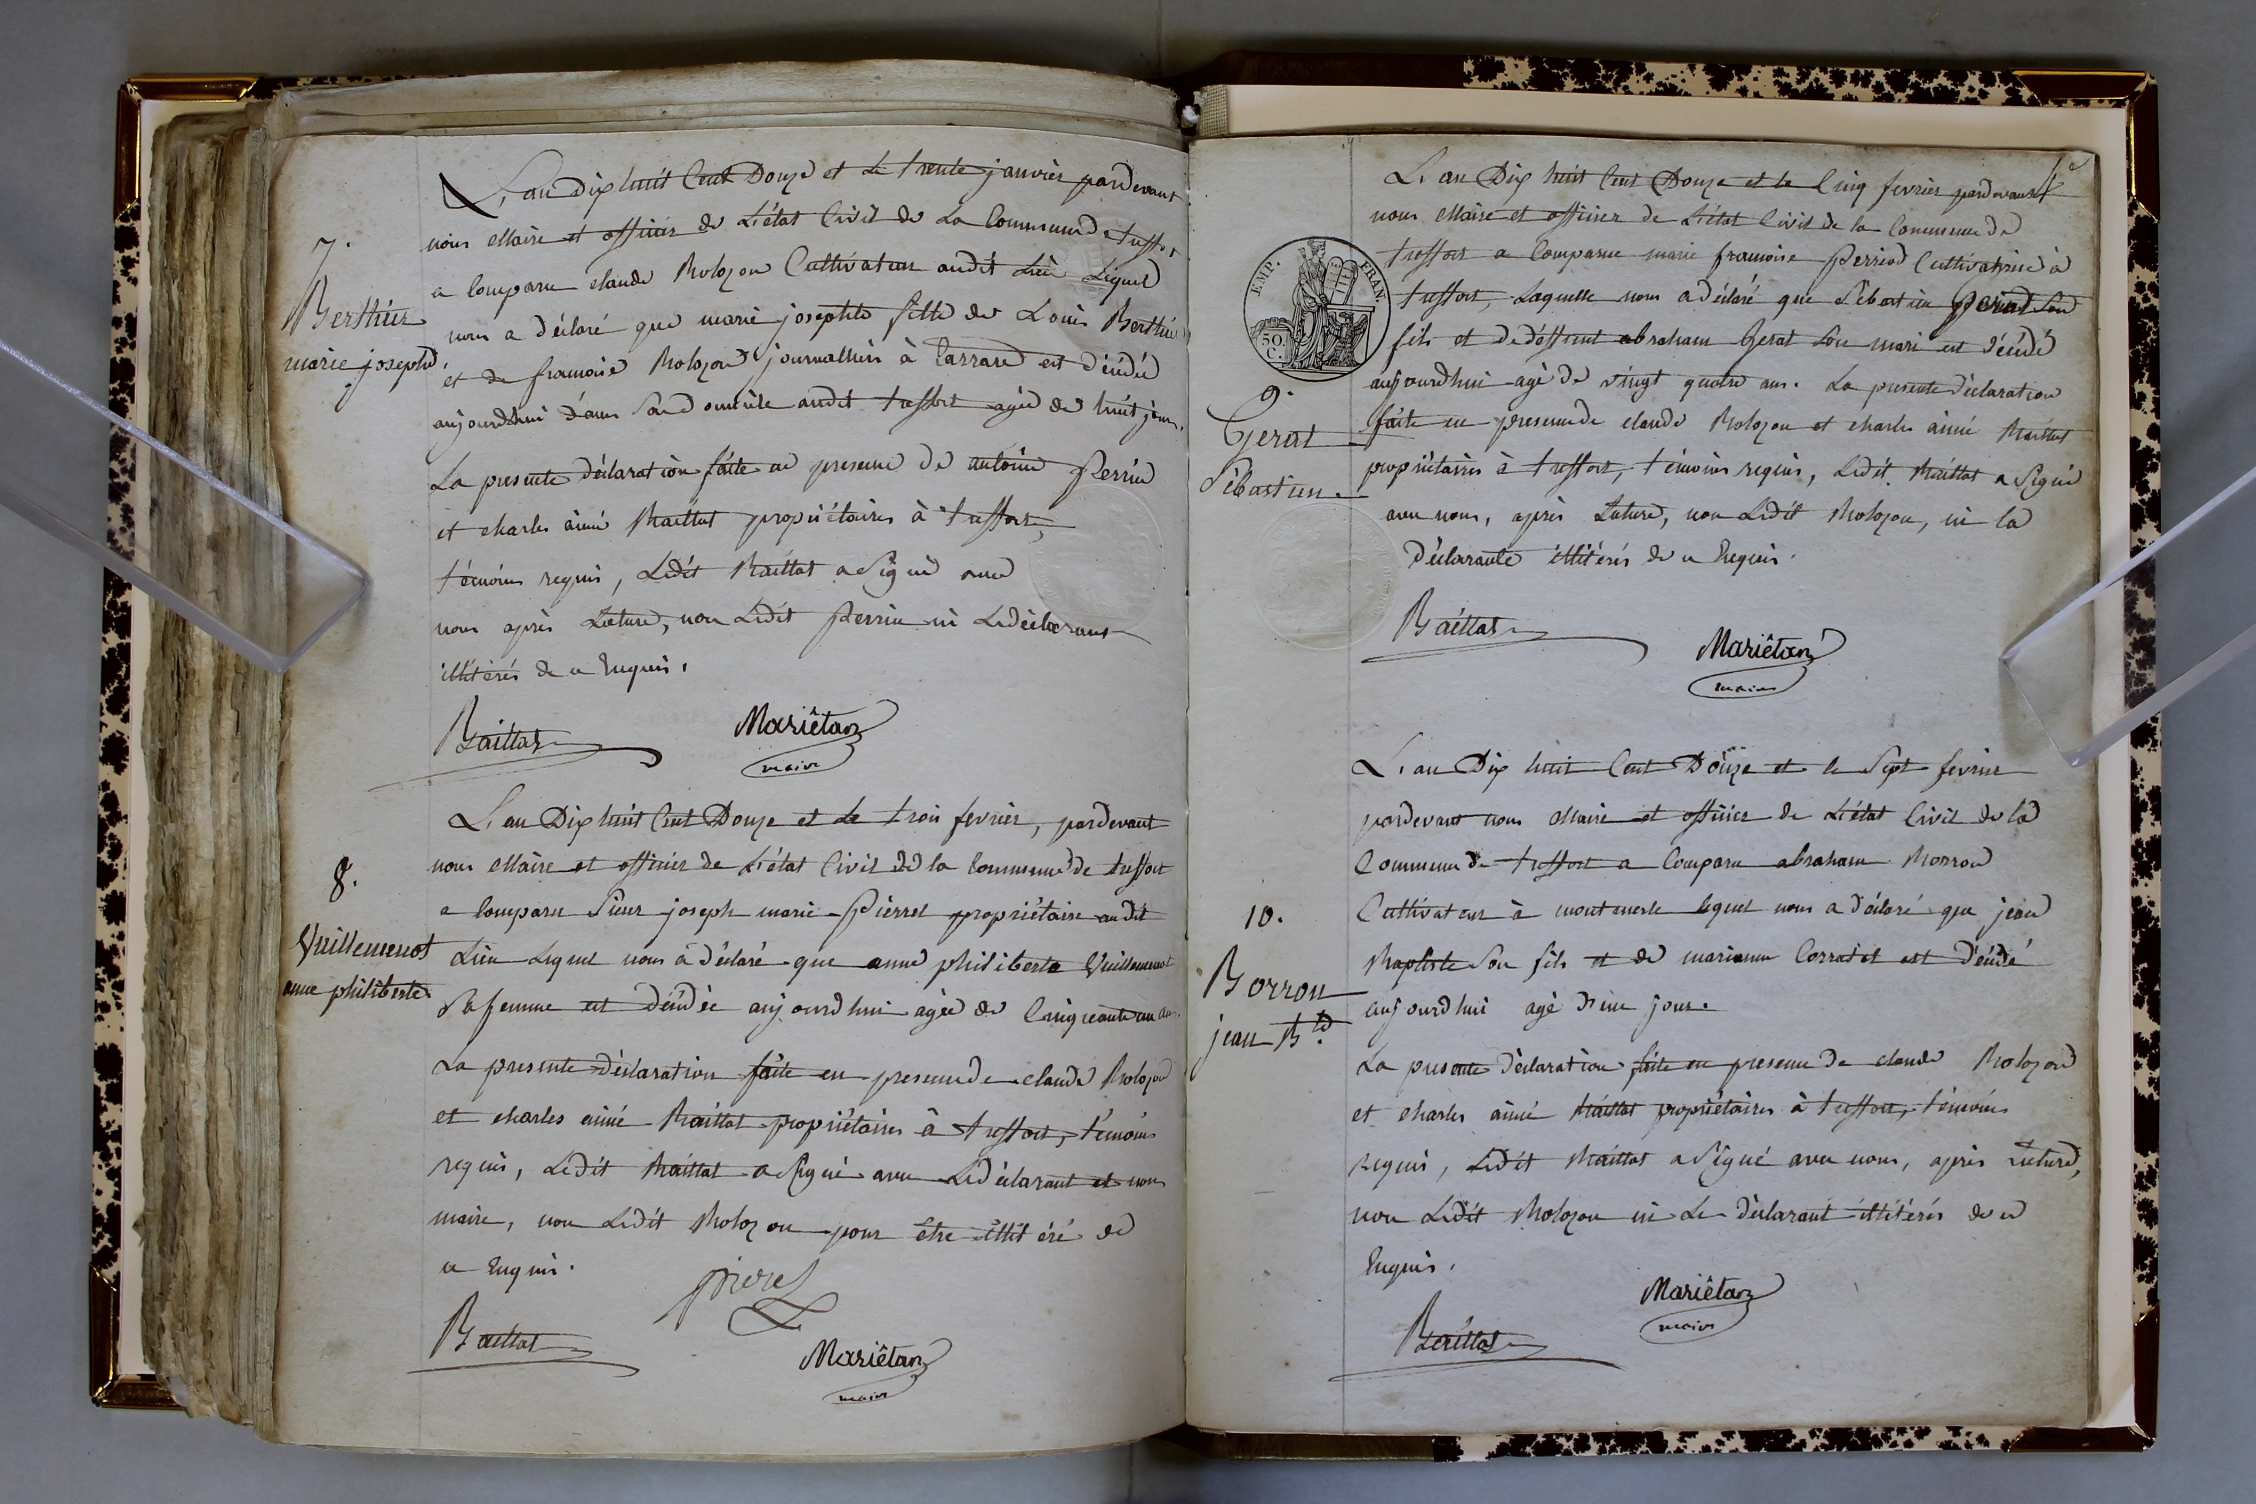 7.
Berthier
marie josephe
L'an dix huit Cent Douze et le trente janvier pardevant
nous Maire et officier de L'état Civil de la Commune de treffort
a Comparu claude Bolozon Cultivateur audit Lieu Lequel
nous a déclaré que marie josephte fille de Louis Berthier
et de francoise Bolozon journalliers à est décédée
aujourdhui dans Son domicile audit treffort agée de huit jours.
La presente déclaration faite en presence de antoine Perrin
et charles aimé Baillat propriétaires à treffort,
témoins requis, Ledit Baillat a Signé avec
nous après Lecture, non Ledit Perrin ni Ledéclarant
illitérés de ce Enquis.
Baillat
Mariêtan
maire
8.
Vuillemenot
anne philiberte
L'an Dix huit Cent Douze et le trois fevrier, pardevant
nous Maire et officier de L'état Civil de la Commune de treffort
a Comparu Sieur joseph marie Pierrel propriétaire audit
Lieu Lequel nous a déclaré que anne philiberte Vuillemenot
Sa femme est décédée aujourdhui agée de Cinquante un ans.
La presente déclaration faite en presence de claude Bolozon
et charles aimé Baillat propriétaires à treffort, témoins
requis, Ledit Baillat a Signé avec Ledéclarant et nous
maire, non Ledit Bolozon pour être illitéré de
ce Enquis.
Baillat
Mariêtan
maire
EMP. FRAN.
50.
C.
9.
Gerat
Sébastien.
L'an Dix huit Cent Douze et le Cinq fevrier pardevant
nous Maire et officier de L'état Civil de la Commune de
treffort a Comparue marie francoise Perrin Cultivatrice à
treffort, Laquelle nous a déclaré que Sébastien Gerat Son
fils et de deffunt abraham Gerat Son mari est décédé
aujourdhui agé de vingt quatre ans. La presente déclaration
faite en presence de claude Bolozon et charles aimé Baillat
propriétaires à treffort, témoins requis, Ledit Baillat a Signé
avec nous, après Lecture, non Ledit Bolozon, ni la
déclarante illitérés de ce Enquis.
Baillat
Mariêtan
maire
10.
Borron
jean Bte.
L'an Dix huit Cent Douze et le Sept fevrier
pardevant nous Maire et officier de L'état Civil de la
Commune de treffort a Comparu abraham Borron
Cultivateur à montmerle lequel nous a déclaré que jean
Baptiste Son fils et de marianne est décédé
aujourdhui agé d'un jour.
La presente déclaration faite en presence de claude Bolozon
et charles aimé Baillat propriétaires à treffort, témoins
requis, Ledit Baillat a Signé avec nous, après Lecture,
non Ledit Bolozon ni Le déclarant illitérés de ce
Enquis.
Baillat
Mariêtan
maire